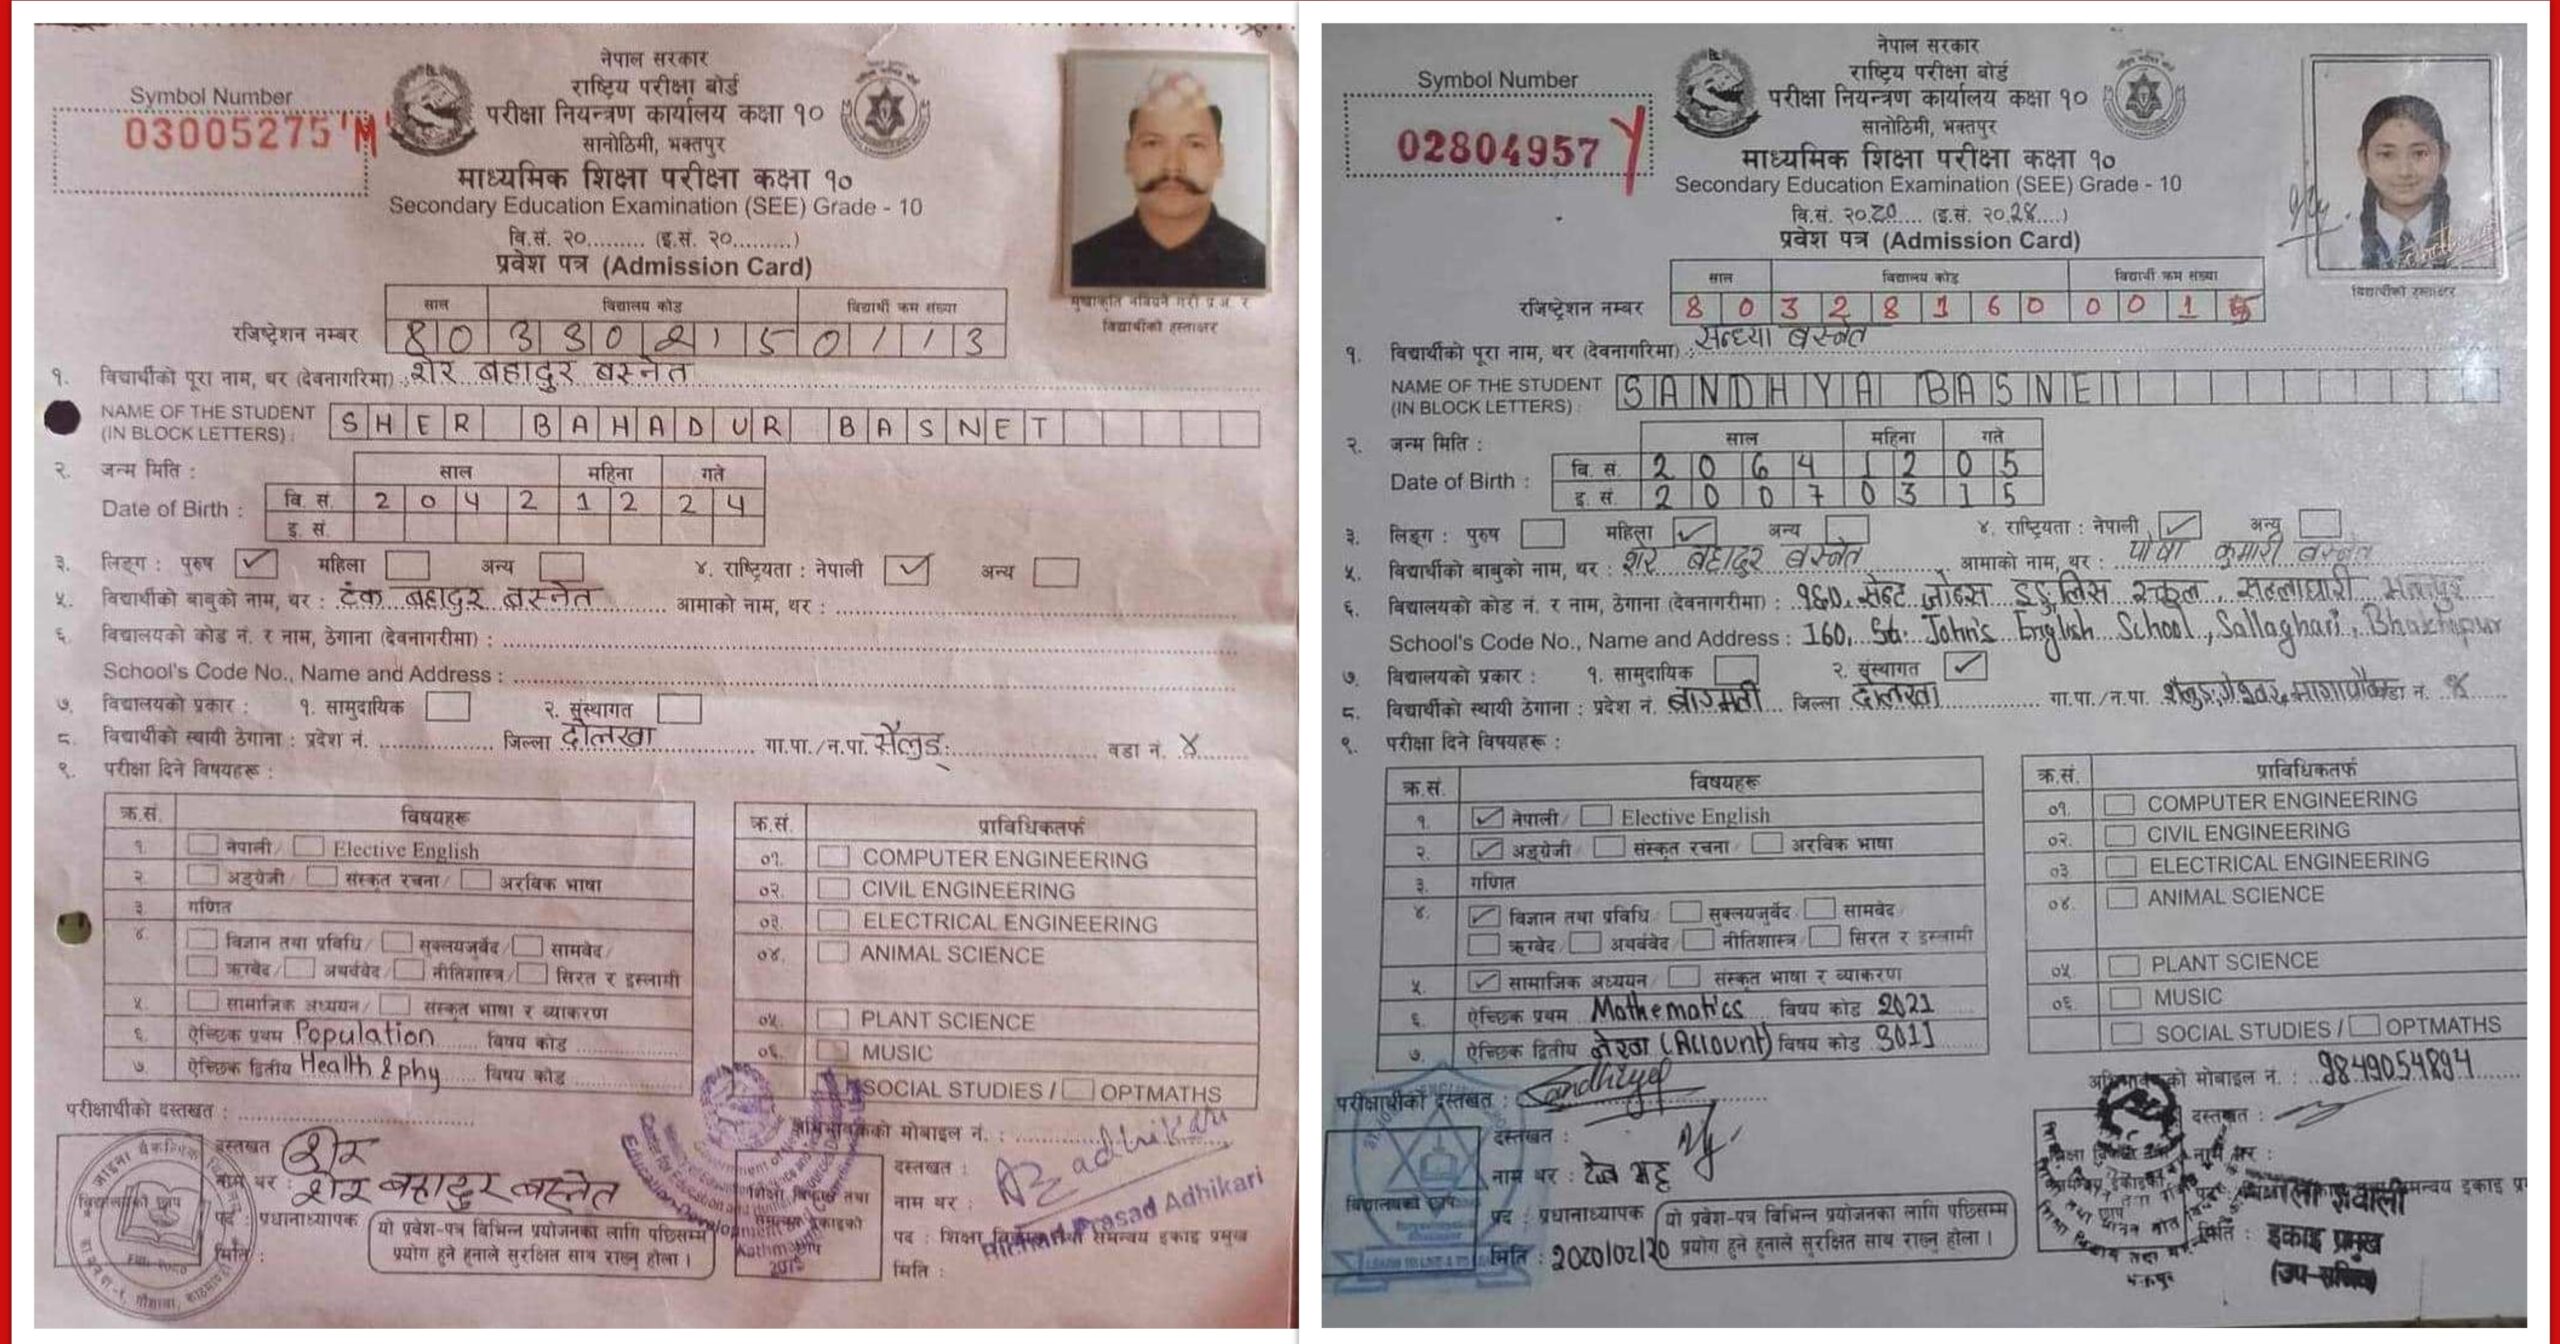 Symbol Number
03005275 'M'
नेपाल सरकार
राष्ट्रिय परीक्षा बोर्ड
परीक्षा नियन्त्रण कार्यालय कक्षा १०
सानोठिमी, भक्तपुर
माध्यमिक शिक्षा परीक्षा कक्षा १०
Secondary Education Examination (SEE) Grade - 10
वि.सं. २०......... (इ.सं. २०.........)
प्रवेश पत्र (Admission Card)
विद्यार्थीको हस्ताक्षर
साल विद्यालय कोड विद्यार्थी क्रम संख्या
रजिष्ट्रेशन नम्बर 8 0 3 3 0 2 1 5 0 1 1 3
१. विद्यार्थीको पूरा नाम, थर (देवनागरिमा) : शेर बहादुर बस्नेत
NAME OF THE STUDENT (IN BLOCK LETTERS) : SHER BAHADUR BASNET
२. जन्म मिति :
साल महिना गते
Date of Birth : वि. सं. 2 0 4 2 1 2 2 4
इ. सं.
३. लिङ्ग : पुरुष ✓ महिला अन्य ४. राष्ट्रियता : नेपाली ✓ अन्य
५. विद्यार्थीको बाबुको नाम, थर : टंक बहादुर बस्नेत आमाको नाम, थर :
६. विद्यालयको कोड नं. र नाम, ठेगाना (देवनागरीमा) :
School's Code No., Name and Address :
७. विद्यालयको प्रकार : १. सामुदायिक २. संस्थागत
८. विद्यार्थीको स्थायी ठेगाना : प्रदेश नं. जिल्ला दोलखा गा.पा./न.पा. सैलुङ वडा नं. ४
९. परीक्षा दिने विषयहरू :
क्र.सं. विषयहरू
१. नेपाली/ Elective English
२. अङ्ग्रेजी/ संस्कृत रचना/ अरविक भाषा
३. गणित
४. विज्ञान तथा प्रविधि/ सुक्लयजुर्वेद/ सामवेद/
ऋग्वेद/ अथर्ववेद/ नीतिशास्त्र/ सिरत र इस्लामी
५. सामाजिक अध्ययन/ संस्कृत भाषा र व्याकरण
६. ऐच्छिक प्रथम Population विषय कोड
७. ऐच्छिक द्वितीय Health & phy विषय कोड
क्र.सं. प्राविधिकतर्फ
०१. COMPUTER ENGINEERING
०२. CIVIL ENGINEERING
०३ ELECTRICAL ENGINEERING
०४. ANIMAL SCIENCE
०५. PLANT SCIENCE
०६. MUSIC
SOCIAL STUDIES / OPTMATHS
परीक्षार्थीको दस्तखत :
दस्तखत शेर
नाम थर : शेर बहादुर बस्नेत
पद : प्रधानाध्यापक
मिति :
यो प्रवेश-पत्र विभिन्न प्रयोजनका लागि पछिसम्म
प्रयोग हुने हुनाले सुरक्षित साथ राख्नु होला ।
मोबाइल नं. :
दस्तखत :
नाम थर : Prasad Adhikari
पद : शिक्षा समन्वय इकाइ प्रमुख
मिति :
Symbol Number
02804957 Y
नेपाल सरकार
राष्ट्रिय परीक्षा बोर्ड
परीक्षा नियन्त्रण कार्यालय कक्षा १०
सानोठिमी, भक्तपुर
माध्यमिक शिक्षा परीक्षा कक्षा १०
Secondary Education Examination (SEE) Grade - 10
वि.सं. २०८०.... (इ.सं. २०.२४....)
प्रवेश पत्र (Admission Card)
विद्यार्थीको हस्ताक्षर
साल विद्यालय कोड विद्यार्थी क्रम संख्या
रजिष्ट्रेशन नम्बर 8 0 3 2 8 1 6 0 0 0 1
१. विद्यार्थीको पूरा नाम, थर (देवनागरिमा) : सन्ध्या बस्नेत
NAME OF THE STUDENT (IN BLOCK LETTERS) : SANDHYA BASNET
२. जन्म मिति :
साल महिना गते
Date of Birth : वि. सं. 2 0 6 4 1 2 0 5
इ. सं. 2 0 0 7 0 3 1 5
३. लिङ्ग : पुरुष महिला ✓ अन्य ४. राष्ट्रियता : नेपाली ✓ अन्य
५. विद्यार्थीको बाबुको नाम, थर : शेर बहादुर बस्नेत आमाको नाम, थर : कुमारी बस्नेत
६. विद्यालयको कोड नं. र नाम, ठेगाना (देवनागरीमा) : १६०, सेन्ट जोन्स इङ्लिस स्कूल, सल्लाघारी भक्तपुर
School's Code No., Name and Address : 160, St. John's English School, Sallaghari, Bhaktapur
७. विद्यालयको प्रकार : १. सामुदायिक २. संस्थागत ✓
८. विद्यार्थीको स्थायी ठेगाना : प्रदेश नं. बागमती जिल्ला दोलखा गा.पा./न.पा. नं. ४
९. परीक्षा दिने विषयहरू :
क्र.सं. विषयहरू
१. ✓ नेपाली/ Elective English
२. ✓ अङ्ग्रेजी/ संस्कृत रचना/ अरविक भाषा
३. गणित
४. ✓ विज्ञान तथा प्रविधि/ सुक्लयजुर्वेद/ सामवेद/
ऋग्वेद/ अथर्ववेद/ नीतिशास्त्र/ सिरत र इस्लामी
५. ✓ सामाजिक अध्ययन/ संस्कृत भाषा र व्याकरण
६. ऐच्छिक प्रथम Mathematics विषय कोड 2021
७. ऐच्छिक द्वितीय लेखा (Account) विषय कोड 3011
क्र.सं. प्राविधिकतर्फ
०१. COMPUTER ENGINEERING
०२. CIVIL ENGINEERING
०३ ELECTRICAL ENGINEERING
०४. ANIMAL SCIENCE
०५ PLANT SCIENCE
०६. MUSIC
SOCIAL STUDIES / OPTMATHS
परीक्षार्थीको दस्तखत :
दस्तखत :
नाम थर : देव भट्ट
पद : प्रधानाध्यापक
मिति : 2080/02/20
यो प्रवेश-पत्र विभिन्न प्रयोजनका लागि पछिसम्म
प्रयोग हुने हुनाले सुरक्षित साथ राख्नु होला ।
मोबाइल नं. : 9849054894
दस्तखत :
मिति :
इकाइ प्रमुख
(उप-सचिव)